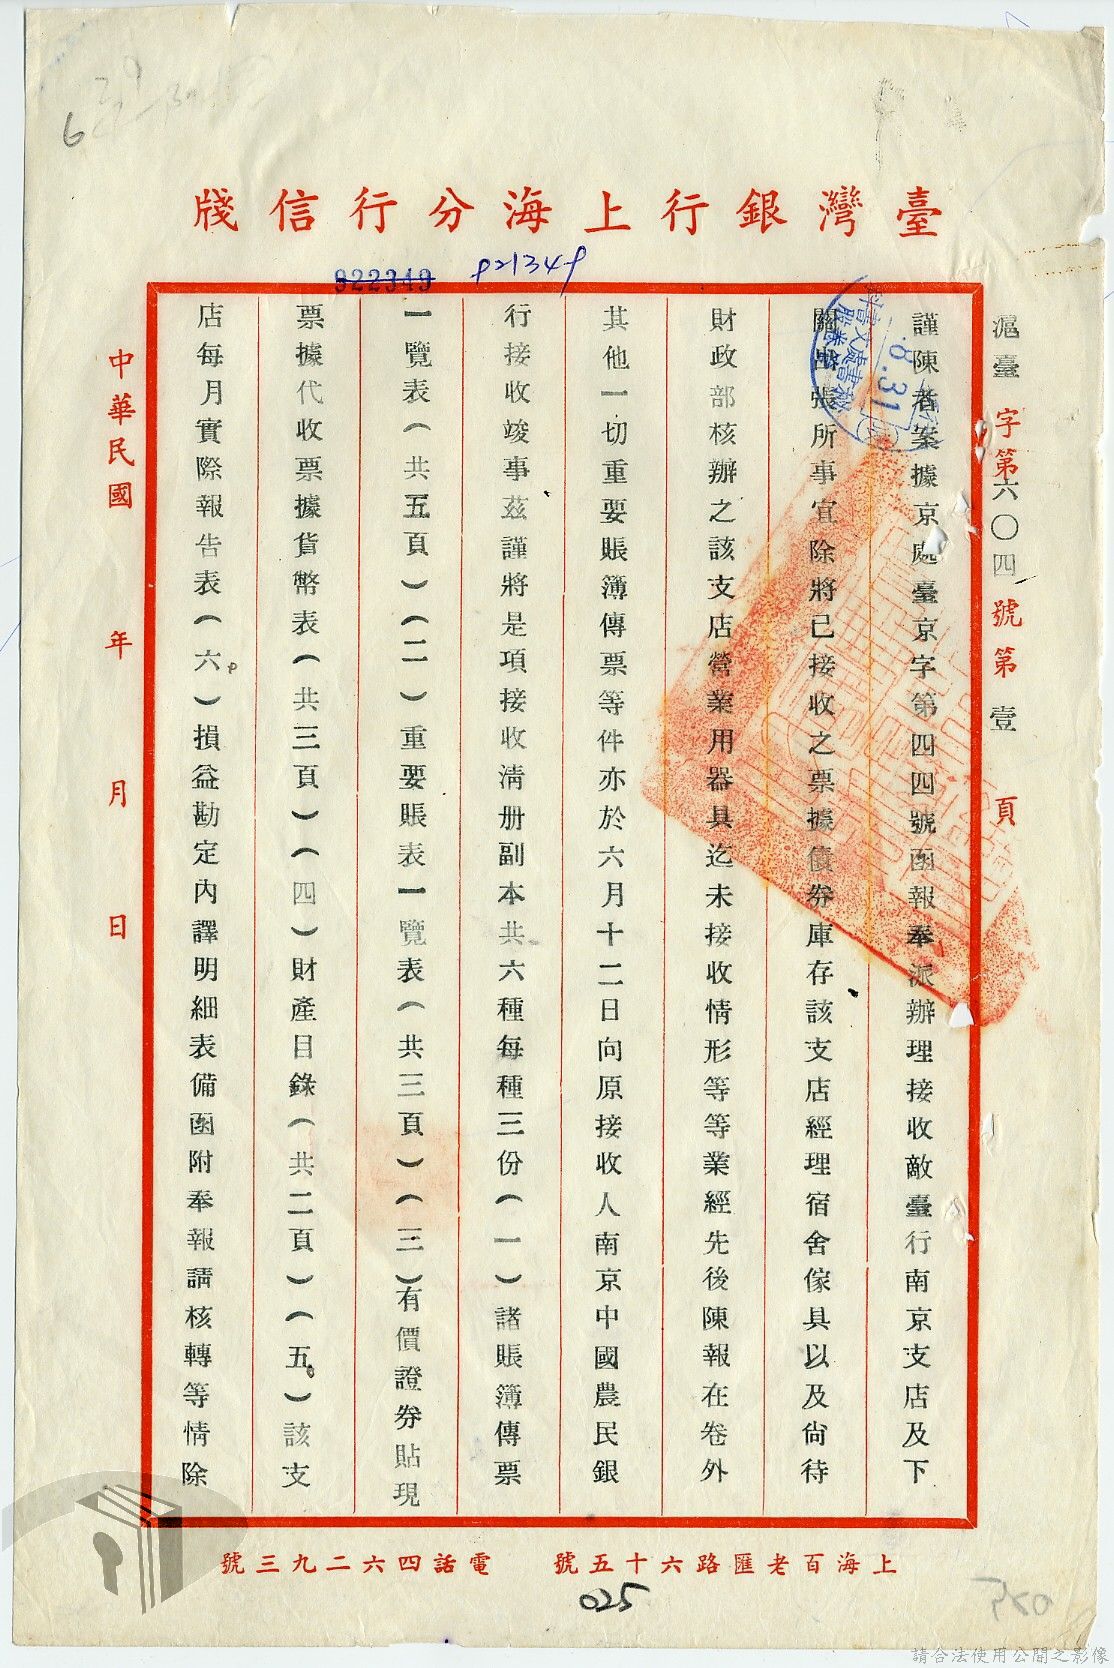 臺灣銀行上海分行信牋
922349
P21349
滬臺字第六〇四號第壹頁
謹陳者案據京處臺京字第四四號函報奉派辦理接收敵臺行南京支店及下
關出張所事宜除將已接收之票據債券庫存該支店經理宿舍傢具以及尙待
財政部核辦之該支店營業用器具迄未接收情形等等業經先後陳報在卷外
其他一切重要賬簿傳票等件亦於六月十二日向原接收人南京中國農民銀
行接收竣事茲謹將是項接收淸册副本共六種每種三份(一)諸賬簿傳票
一覽表(共五頁)(二)重要賬表一覽表(共三頁)(三)有價證券貼現
票據代收票據貨幣表(共三頁)(四)財產目錄(共二頁)(五)該支
店每月實際報告表(六)損益勘定內譯明細表備函附奉報請核轉等情除
中華民國 年 月 日
8.31
上海百老匯路六十五號 電話四六二九三號
025
請合法使用公開之影像
6